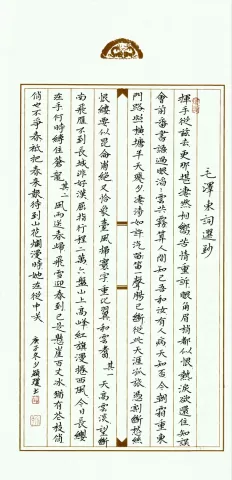 毛澤東詞選抄
揮手從茲去更那堪淒然相嚮苦情重訴眼角眉梢都似恨熱淚欲還住知誤
會前番書語過眼滔滔雲共霧算人間知己吾和汝有人病天知否今朝霜重東
門路照橫塘半天殘月淒清如許汽笛一聲腸已斷從此天涯孤旅憑割斷愁絲
恨縷要似崑崙崩絕又恰像臺風掃寰宇重比翼和雲翥其一天高雲淡望斷
南飛雁不到長城非好漢屈指行程二萬六盤山上高峰紅旗漫捲西風今日長纓
在手何時縛住蒼龍其二風雨送春歸飛雪迎春到已是懸崖百丈冰猶有花枝俏
俏也不爭春祇把春來報待到山花爛漫時她在叢中笑